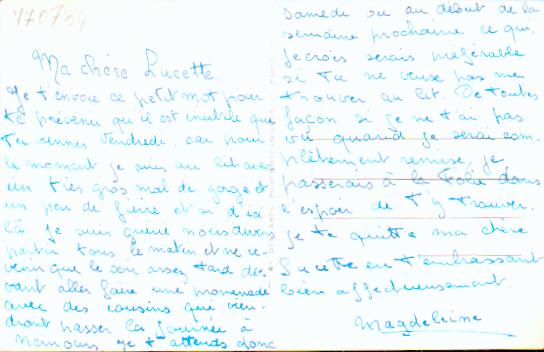 770734
Ma chère Lucette,
Je t'envoie ce petit mot pour
te prévenir qu'il est inutile que
tu viennes vendredi car pour
le moment je suis au lit avec
un très gros mal de gorge et
un peu de fièvre et si d'ici
là je suis guérie nous devons
partir tous le matin et ne re-
venir que le soir assez tard de-
vant aller faire une promenade
avec des cousins qui vien-
dront passer la journée à
Nemours. Je t'attends donc
samedi ou au début de la
semaine prochaine ce qui,
je crois serais préférable
si tu ne veux pas me
trouver au lit. De toutes
façon si je ne t'ai pas
vu quand je serai com-
plètement remise, je
passerais à la Folie dans
l'espoir de t'y trouver.
Je te quitte ma chère
Lucette en t'embrassant
bien affectueusement
Magdeleine